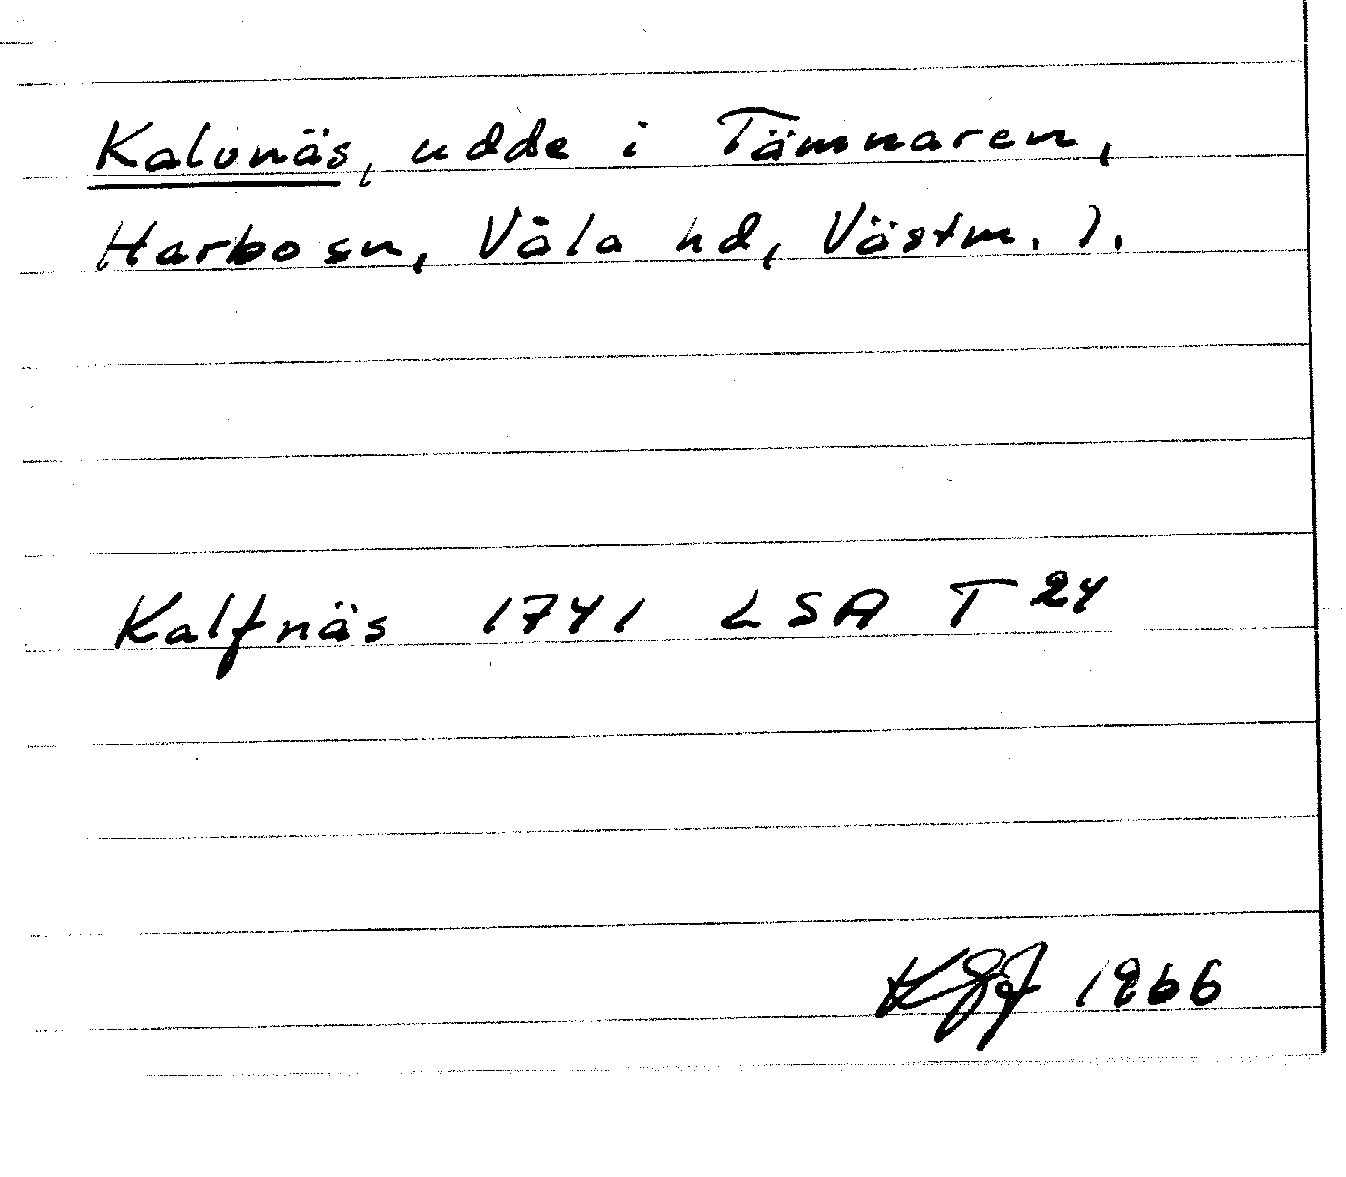 Kalvnäs, udde i Tämnaren,
Harbo sn, Våla hd, Västm. l.
Kalfnäs 1741 LSA T 24
1966